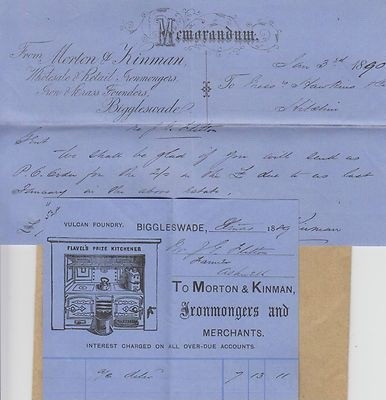 Memorandum.
From Morton & Kinman,
Wholesale & Retail Ironmongers,
Iron & Brass Founders,
Biggleswade
Jan 3rd 1890
To Messrs Hawkins & Co
Hitchin
re J. G. Flitton
Gent
We shall be glad if you will send us
P.O. Order for the 2/- in the £ due to us last
January in the above estate.
Kinman
VULCAN FOUNDRY.
BIGGLESWADE, 189
FLAVEL'S PRIZE KITCHENER
Mr J G Flitton
Farmer
Ashwell
TO MORTON & KINMAN,
Ironmongers and
MERCHANTS.
INTEREST CHARGED ON ALL OVER-DUE ACCOUNTS.
7 13 11